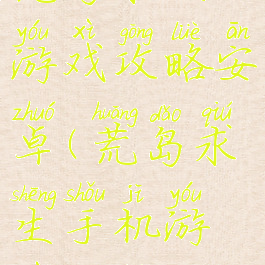 yóu xì gōng lüè ān
游戏攻略安
zhuó huāng dǎo qiú
卓(荒岛求
shēng shǒu jī yóu
生手机游